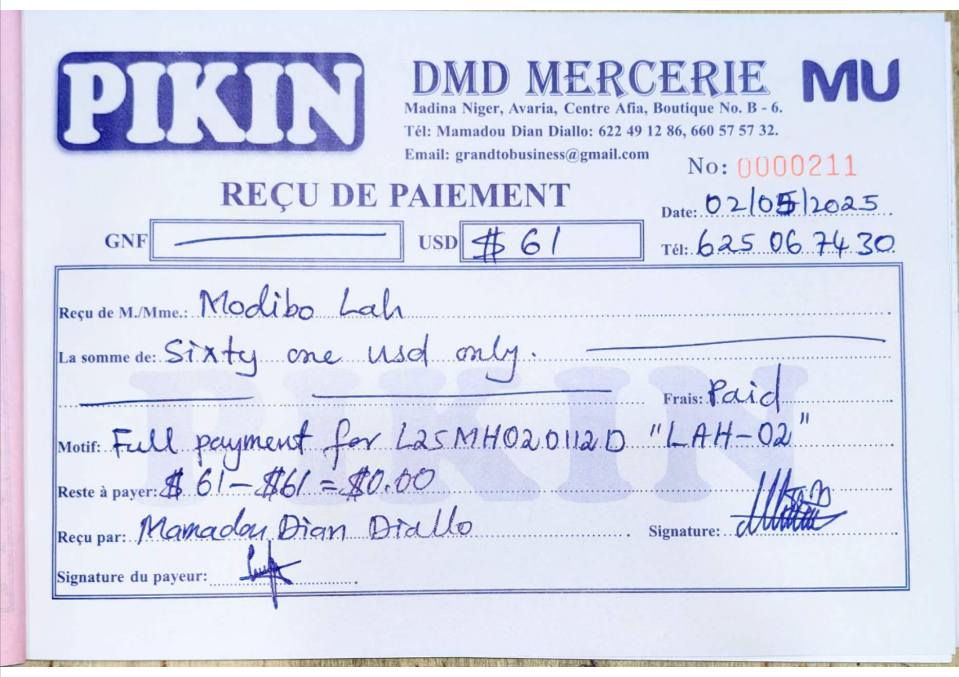 PIKIN
DMD MERCERIE MU
Madina Niger, Avaria, Centre Afia, Boutique No. B - 6.
Tél: Mamadou Dian Diallo: 622 49 12 86, 660 57 57 32.
Email: grandtobusiness@gmail.com
No: 0000211
REÇU DE PAIEMENT
Date: 02/05/2025
GNF USD $ 61 Tél: 625 06 74 30
Reçu de M./Mme.: Modibo Lah
La somme de: Sixty one usd only.
Frais: Paid
Motif: Full payment for L25MH020112D "LAH-02"
Reste à payer: $ 61 - $61 = $0.00
Reçu par: Mamadou Dian Diallo Signature:
Signature du payeur:
PIKIN